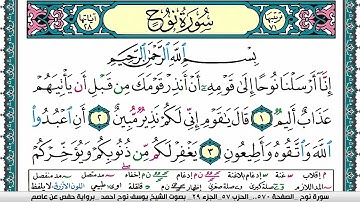 سُورَةُ نُوحٍ
ترتيبها ٧١
آياتها ٢٨
بِسْمِ اللَّهِ الرَّحْمَٰنِ الرَّحِيمِ
إِنَّا أَرْسَلْنَا نُوحًا إِلَىٰ قَوْمِهِ أَنْ أَنذِرْ قَوْمَكَ مِن قَبْلِ أَن يَأْتِيَهُمْ
عَذَابٌ أَلِيمٌ ١ قَالَ يَٰقَوْمِ إِنِّي لَكُمْ نَذِيرٌ مُّبِينٌ ٢ أَنِ اعْبُدُوا
اللَّهَ وَاتَّقُوهُ وَأَطِيعُونِ ٣ يَغْفِرْ لَكُم مِّن ذُنُوبِكُمْ وَيُؤَخِّرْكُمْ
سورة نوح - الصفحة ٥٧٠ - الحزب ٥٧ - الجزء ٢٩ - بصوت الشيخ يوسف نوح احمد - برواية حفص عن عاصم